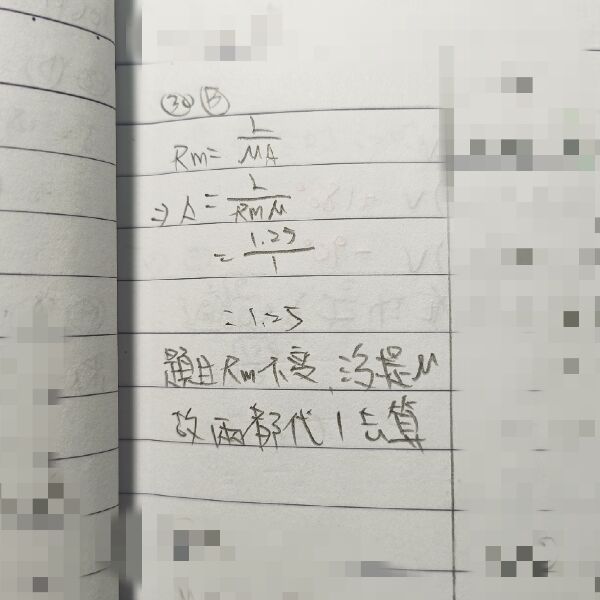 30 B
Rm = L / MA
⇒ A = L / RmM
= 1.25 / 1
= 1.25
題目Rm不變,沒提M
故兩都代1去算